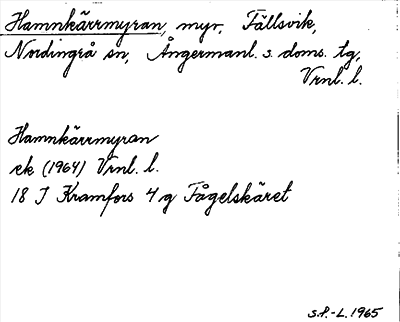 Hamnkärrmyran, myr, Fällsvik,
Nordingrå sn, Ångermanl. s. doms. tg,
Vrnl. l.
Hamnkärrmyran
ek (1964) Vrnl. l.
18 J Kramfors 4 g Fågelskäret
S.P.-L. 1965